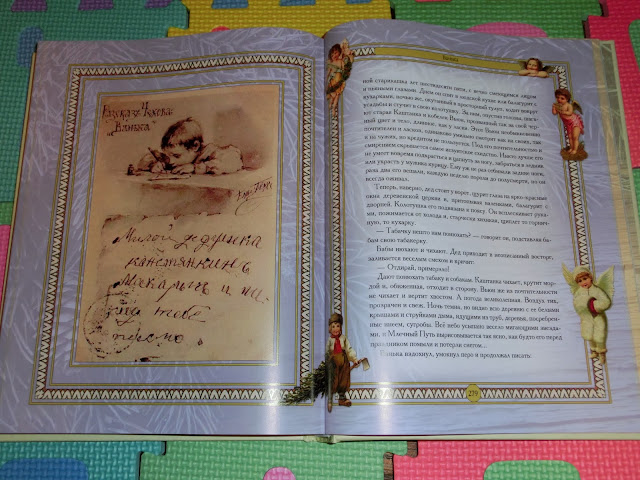 "Ванька"
Милой дедушка
констянкинъ
Макарыч и пи
шу тебе
письмо
Ванька
ной старикашка лет шестидесяти пяти, с вечно смеющимся лицом
и пьяными глазами. Днем он спит в людской кухне или балагурит с
кухарками, ночью же, окутанный в просторный тулуп, ходит вокруг
усадьбы и стучит в свою колотушку. За ним, опустив головы, шага-
ют старая Каштанка и кобелек Вьюн, прозванный так за свой чер-
ный цвет и тело, длинное, как у ласки. Этот Вьюн необыкновенно
почтителен и ласков, одинаково умильно смотрит как на своих, так
и на чужих, но кредитом не пользуется. Под его почтительностью и
смирением скрывается самое иезуитское ехидство. Никто лучше его
не умеет вовремя подкрасться и цапнуть за ногу, забраться в ледник
или украсть у мужика курицу. Ему уж не раз отбивали задние ноги,
раза два его вешали, каждую неделю пороли до полусмерти, но он
всегда оживал.
Теперь, наверно, дед стоит у ворот, щурит глаза на ярко-красные
окна деревенской церкви и, притопывая валенками, балагурит с
дворней. Колотушка его подвязана к поясу. Он всплескивает рука-
ми, пожимается от холода и, старчески хихикая, щиплет то горнич-
ную, то кухарку.
— Табачку нешто нам понюхать? — говорит он, подставляя ба-
бам свою табакерку.
Бабы нюхают и чихают. Дед приходит в неописанный восторг,
заливается веселым смехом и кричит:
— Отдирай, примерзло!
Дают понюхать табаку и собакам. Каштанка чихает, крутит мор-
дой и, обиженная, отходит в сторону. Вьюн же из почтительности
не чихает и вертит хвостом. А погода великолепная. Воздух тих,
прозрачен и свеж. Ночь темна, но видно всю деревню с ее белыми
крышами и струйками дыма, идущими из труб, деревья, посеребрен-
ные инеем, сугробы. Всё небо усыпано весело мигающими звезда-
ми, и Млечный Путь вырисовывается так ясно, как будто его перед
праздником помыли и потерли снегом...
Ванька вздохнул, умокнул перо и продолжал писать:
279